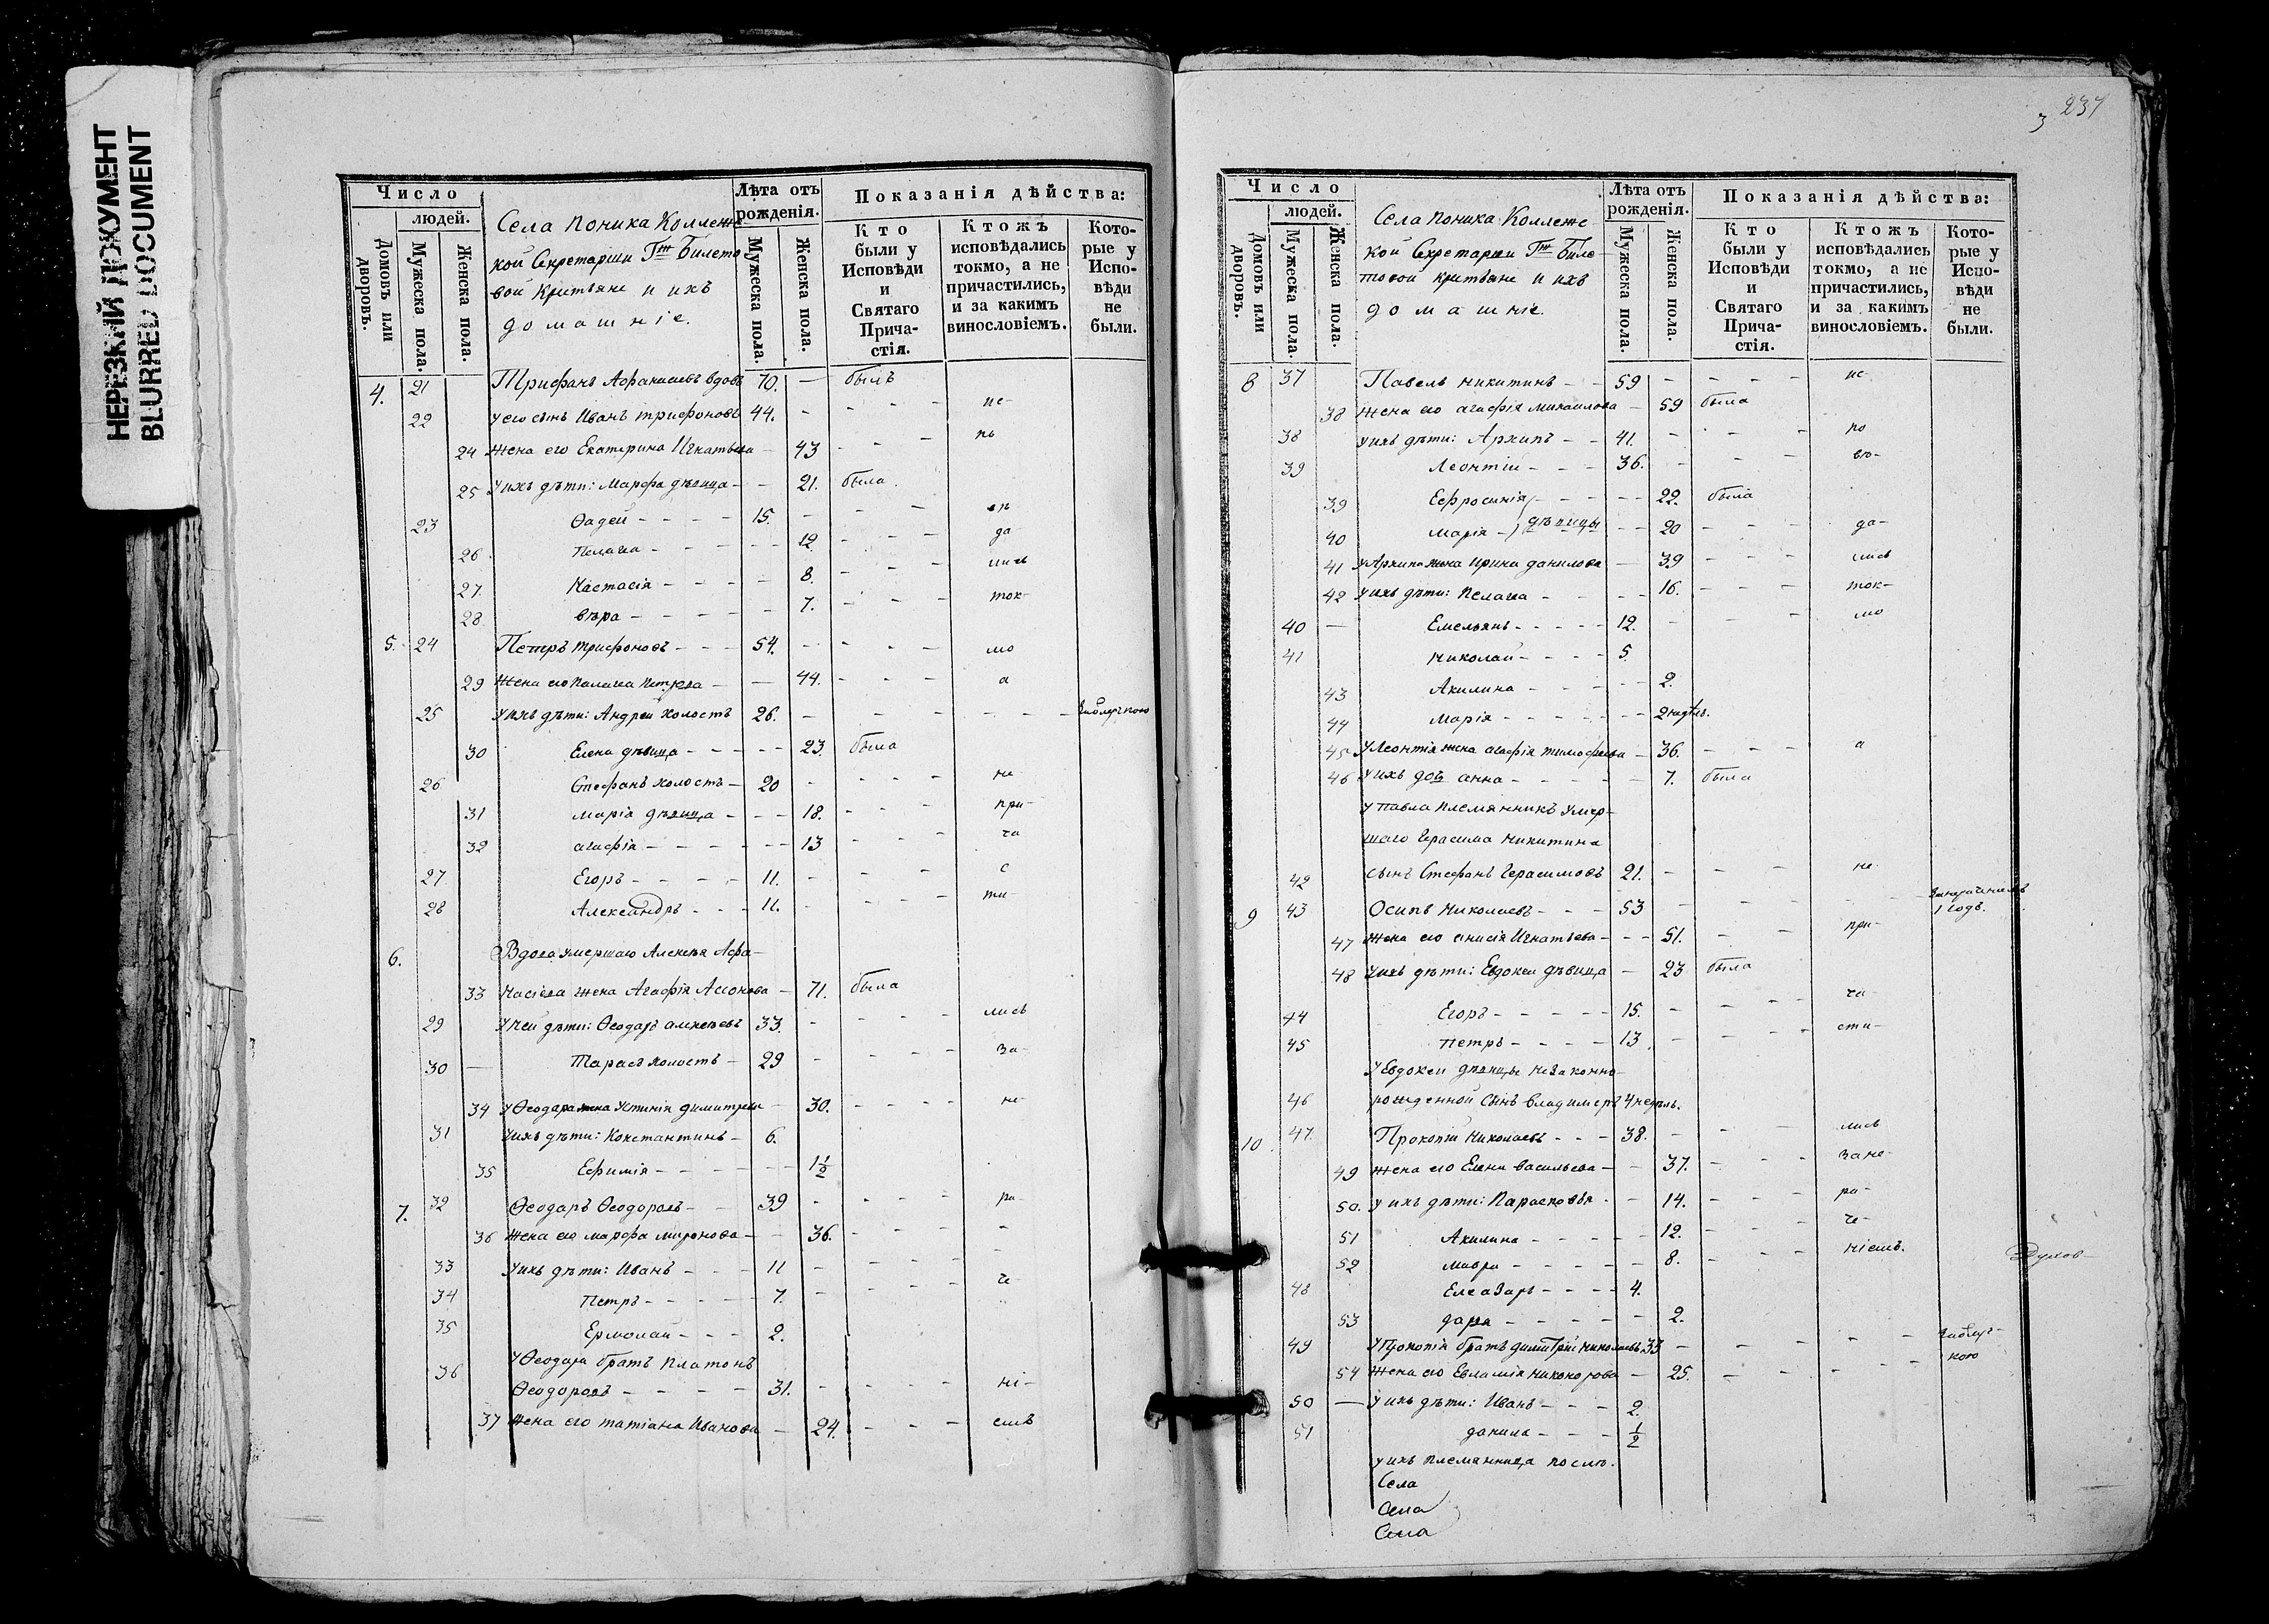 НЕРЕЗКИЙ ДОКУМЕНТ
BLURRED DOCUMENT
Число
людей.
Домовъ или дворовъ.
Мужеска пола.
Женска пола.
Села Поника Коллеже-
кой Секретарши Гжи Билето-
вой Крестьяне и ихъ
домашніе.
Лѣта отъ рожденія.
Мужеска пола.
Женска пола.
Показанія дѣйства:
Кто были у Исповѣди и Святаго Прича-стія.
Ктожъ исповѣдались токмо, а не причастились, и за какимъ винословіемъ.
Кото-рые у Испо-вѣди не были.
4. 21 Трифанъ Афанасьевъ вдовъ 70. — былъ
22 У его сынъ Иванъ Трифоновъ 44. - - - - не-
24 Жена его Екатерина Игнатьева - 43 - - -
25 У ихъ дѣти: Марфа дѣвица - - 21. была
23 Фадей - - - - 15. - - - -
26 Пелагея - - - - - 12. - - - да
27 Настасія - - - - - 8. - - - лись
28 Вѣра - - - - - - 7. - - - ток-
5. 24 Петръ Трифоновъ - - - 54. - - - - мо
29 Жена его Пелагея Петрова - — 44. - - - а
25 У ихъ дѣти: Андрей холостъ 26. - - - - - -
30 Елена дѣвица - - - - - 23. была
26 Стефанъ холостъ - 20 - - - - не
31 Марія дѣвица - - - - 18. - - - при-
32 Агафія - - - - - - 13 - - - ча
27 Егоръ - - - - - 11. - - - - с
28 Александръ - - - 11. - - - - - ти-
6. Вдова умершаго Алексѣя Афа-
33 насіева жена Агафія - 71. была
29 У ней дѣти: Феодаръ Алексѣевъ 33. - - - - - лись
30 — Тарасъ холостъ - 29 - - - - - за-
34 У Феодара жена Устинія Димитріева - 30. - - - - не-
31 У ихъ дѣти: Константинъ - 6.
35 Ефимія - - - - - - - 1 1/2
7. 32 Феодаръ Феодоровъ - 39 - - - - ра-
36 Жена его Марфа Миронова - - 36. - - - - -
33 У ихъ дѣти: Иванъ - - - 11 - - - - -
34 Петръ - - - - - 7. - - - - - че-
35 Ермолай - - - 2.
36 У Феодара братъ Платонъ
Феодоровъ - - - - - 31. - - - - - ні-
37 Жена его Татіана Иванова - 24. - - - емъ
3 237
Число
людей.
Домовъ или дворовъ.
Мужеска пола.
Женска пола.
Села Поника Коллеже-
кой Секретарши Гжи Биле-
товой Крестьяне и ихъ
домашніе.
Лѣта отъ рожденія.
Мужеска пола.
Женска пола.
Показанія дѣйства:
Кто были у Исповѣди и Святаго Прича-стія.
Ктожъ исповѣдались токмо, а не причастились, и за какимъ винословіемъ.
Кото-рые у Испо-вѣди не были.
8 37 Павелъ Никитинъ - - 59 - - - - ис-
38 Жена его Агафія Михаилова - 59 была
38 У ихъ дѣти: Архипъ - - 41. - - - по
39 Леонтій - - - 36. - - -
39 Ефросинія - - - - - - 22. была
40 Марія - дѣвицы - - 20 - - - да-
41 У Архипа жена Ирина Данилова — 39 - - - лись
42 У ихъ дѣти: Пелагея - - - - - 16. - - - ток-
40 — Емельянъ - - - - - 12. - - - мо
41 Николай - - - - 5.
43 Акилина - - - - - - 2.
44 Марія - - - - - - - 2 недѣл.
45 У Леонтія жена Агафія Тимофеева - 36. - - - а
46 У ихъ дочь Анна - - - - - 7. была
У Павла племянникъ умер-
шаго Герасима Никитина
42 сынъ Стефанъ Герасимовъ 21. - - - не
9 43 Осипъ Николаевъ - - - 53 - - - - - 1 годъ.
47 Жена его Анисія Игнатьева - - - 51. - - при-
48 У ихъ дѣти: Евдокея дѣвица - 23 была
44 Егоръ - - - - - 15. - - - - ча-
45 Петръ - - - - 13. - - - - сти-
У Евдокеи дѣвицы незаконно-
46 рожденной сынъ Владимеръ 4 недѣль.
10 47. Прокопій Николаевъ - - - 38. - - - лись
49 Жена его Елена Васильева - - 37. - - - за не-
50. У ихъ дѣти: Парасковѣя - - 14. - - - ра-
51 Акилина - - - - - 12. - - - че-
52 Мавра - - - - - - 8. - - - ніемъ.
48 Елеазаръ - - - - 4.
53 Дарея - - - - - - 2.
49 У Прокопія братъ Димитрій Николаевъ 33 - - - - -
54 Жена его Евламія Никонорова - 25. - - - -
50 — У ихъ дѣти: Иванъ - - - 2.
51 Данила - - - 1/2
У ихъ племянница
Села
Села
Села